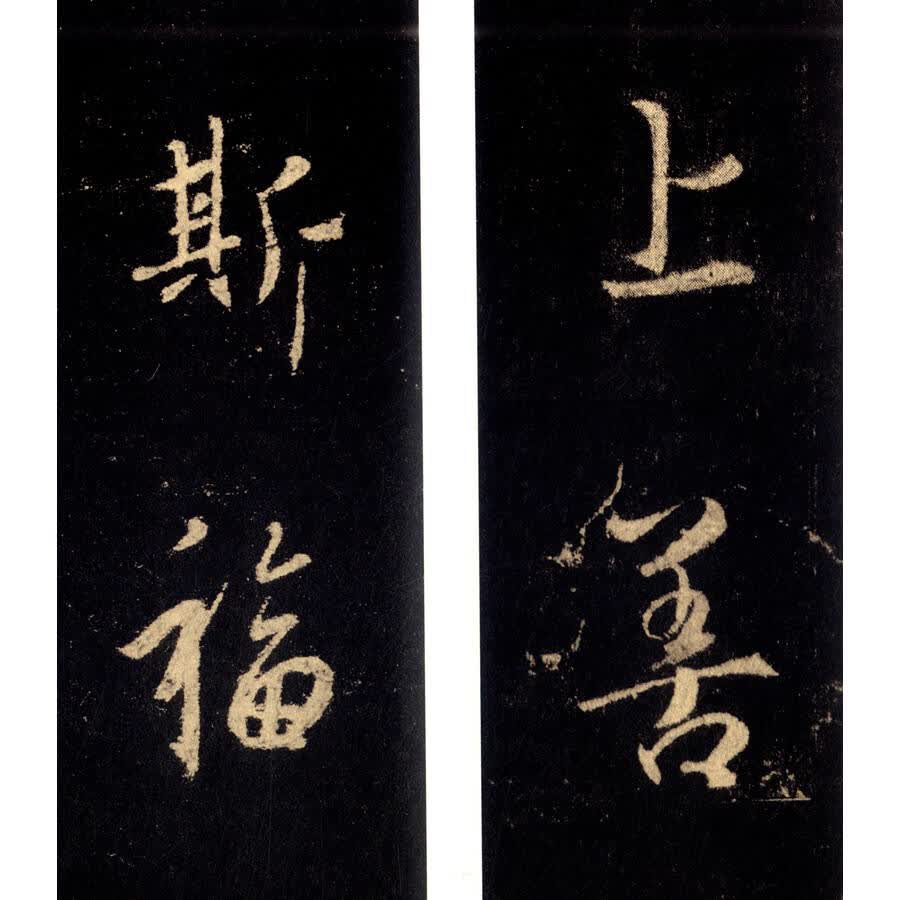 上善
斯福